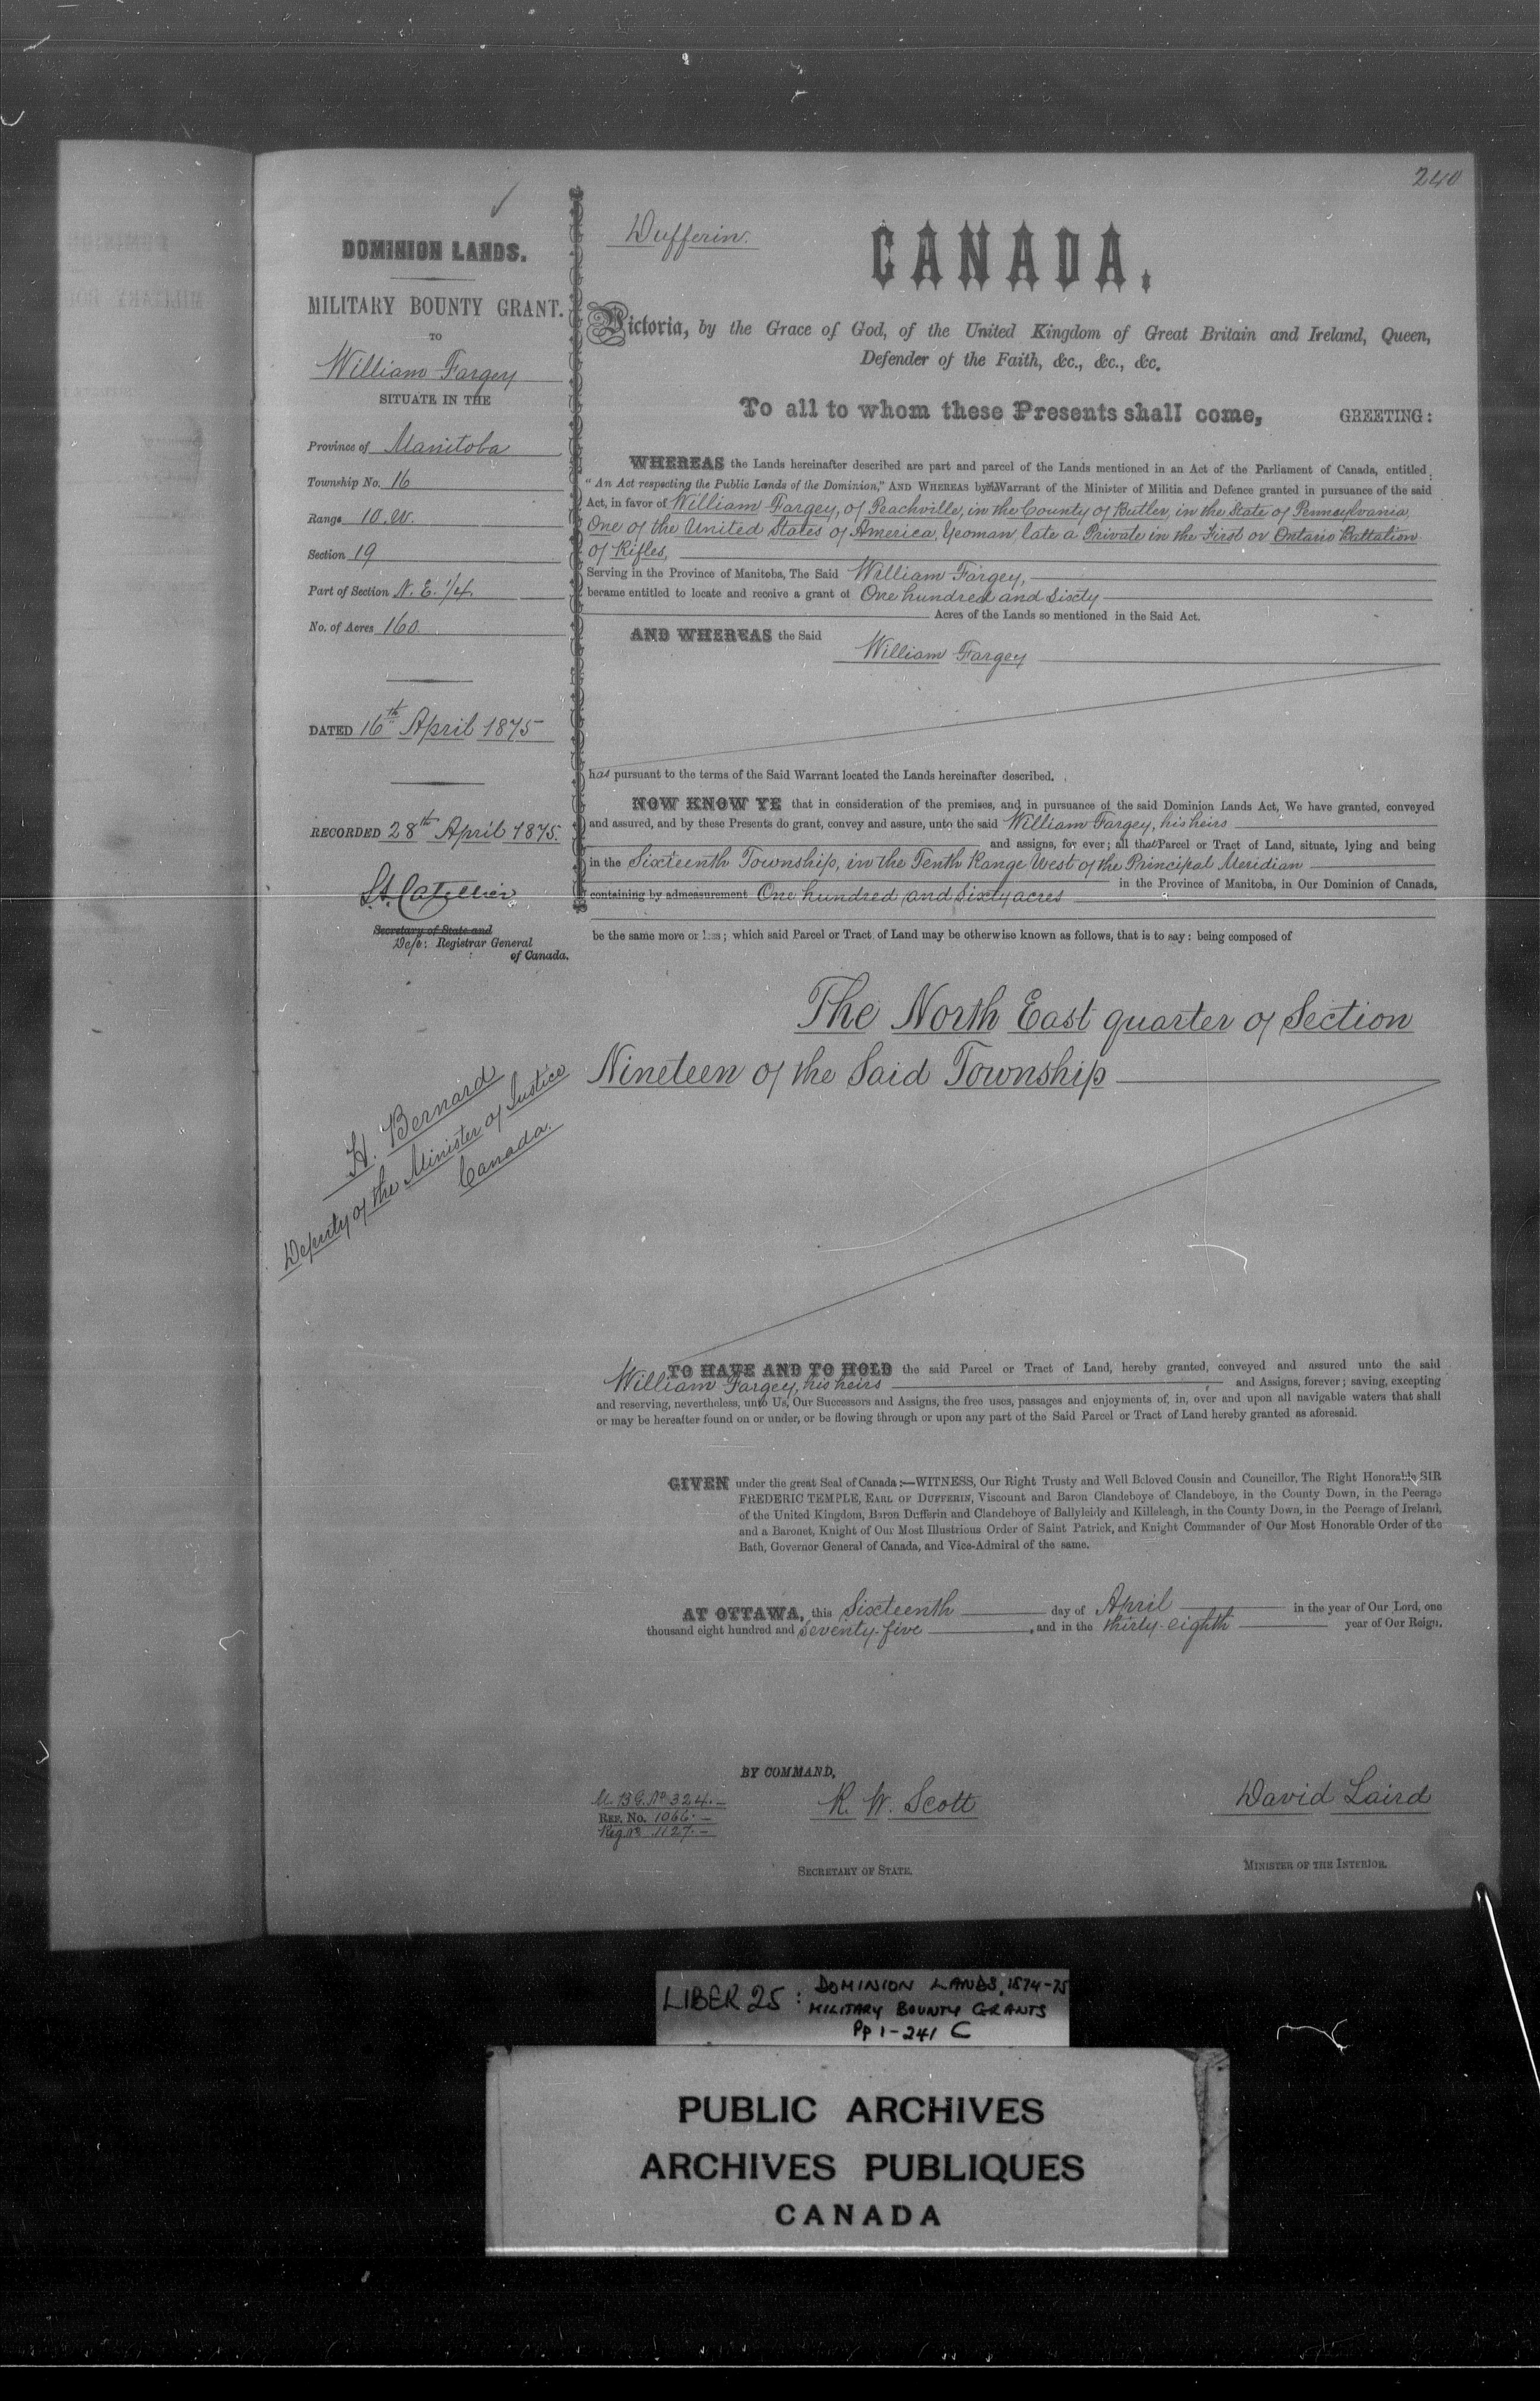 240
DOMINION LANDS.
MILITARY BOUNTY GRANT.
TO
William Fargey
SITUATE IN THE
Province of Manitoba
Township No. 16
Range 10. W.
Section 19
Part of Section N. E. 1/4
No. of Acres 160
DATED 16th April 1875
RECORDED 28th April 1875.
Secretary of State and
Registrar General
of Canada.
H. Bernard
Deputy of the Minister of Justice
Canada.
Dufferin.
CANADA.
Victoria, by the Grace of God, of the United Kingdom of Great Britain and Ireland, Queen,
Defender of the Faith, &c., &c., &c.
To all to whom these Presents shall come, GREETING:
WHEREAS the Lands hereinafter described are part and parcel of the Lands mentioned in an Act of the Parliament of Canada, entitled
"An Act respecting the Public Lands of the Dominion," AND WHEREAS by Warrant of the Minister of Militia and Defence granted in pursuance of the said
Act, in favor of William Fargey, of Peachville, in the County of Butler, in the State of Pennsylvania,
One of the United States of America, Yeoman, late a Private in the First or Ontario Battalion
of Rifles,
Serving in the Province of Manitoba, The Said William Fargey,
became entitled to locate and receive a grant of One hundred and Sixty
Acres of the Lands so mentioned in the Said Act.
AND WHEREAS the Said
William Fargey
has pursuant to the terms of the Said Warrant located the Lands hereinafter described.
NOW KNOW YE that in consideration of the premises, and in pursuance of the said Dominion Lands Act, We have granted, conveyed
and assured, and by these Presents do grant, convey and assure, unto the said William Fargey, his heirs
and assigns, for ever; all that Parcel or Tract of Land, situate, lying and being
in the Sixteenth Township, in the Tenth Range West of the Principal Meridian
in the Province of Manitoba, in Our Dominion of Canada,
containing by admeasurement One hundred and Sixty acres
be the same more or less; which said Parcel or Tract of Land may be otherwise known as follows, that is to say: being composed of
The North East quarter of Section
Nineteen of the Said Township
TO HAVE AND TO HOLD the said Parcel or Tract of Land, hereby granted, conveyed and assured unto the said
William Fargey, his heirs and Assigns, forever; saving, excepting
and reserving, nevertheless, unto Us, Our Successors and Assigns, the free uses, passages and enjoyments of, in, over and upon all navigable waters that shall
or may be hereafter found on or under, or be flowing through or upon any part of the Said Parcel or Tract of Land hereby granted as aforesaid.
GIVEN under the great Seal of Canada:—WITNESS, Our Right Trusty and Well Beloved Cousin and Councillor, The Right Honorable SIR
FREDERIC TEMPLE, EARL OF DUFFERIN, Viscount and Baron Clandeboye of Clandeboye, in the County Down, in the Peerage
of the United Kingdom, Baron Dufferin and Clandeboye of Ballyleidy and Killeleagh, in the County Down, in the Peerage of Ireland,
and a Baronet, Knight of Our Most Illustrious Order of Saint Patrick, and Knight Commander of Our Most Honorable Order of the
Bath, Governor General of Canada, and Vice-Admiral of the same.
AT OTTAWA, this Sixteenth day of April in the year of Our Lord, one
thousand eight hundred and seventy-five, and in the thirty-eighth year of Our Reign.
BY COMMAND,
M. B G. No 324.
REF. No. 1066.
Reg no 1127.
R. W. Scott
David Laird
SECRETARY OF STATE.
MINISTER OF THE INTERIOR.
LIBER 25: DOMINION LANDS, 1874-75
MILITARY BOUNTY GRANTS
Pp 1-241 C
PUBLIC ARCHIVES
ARCHIVES PUBLIQUES
CANADA